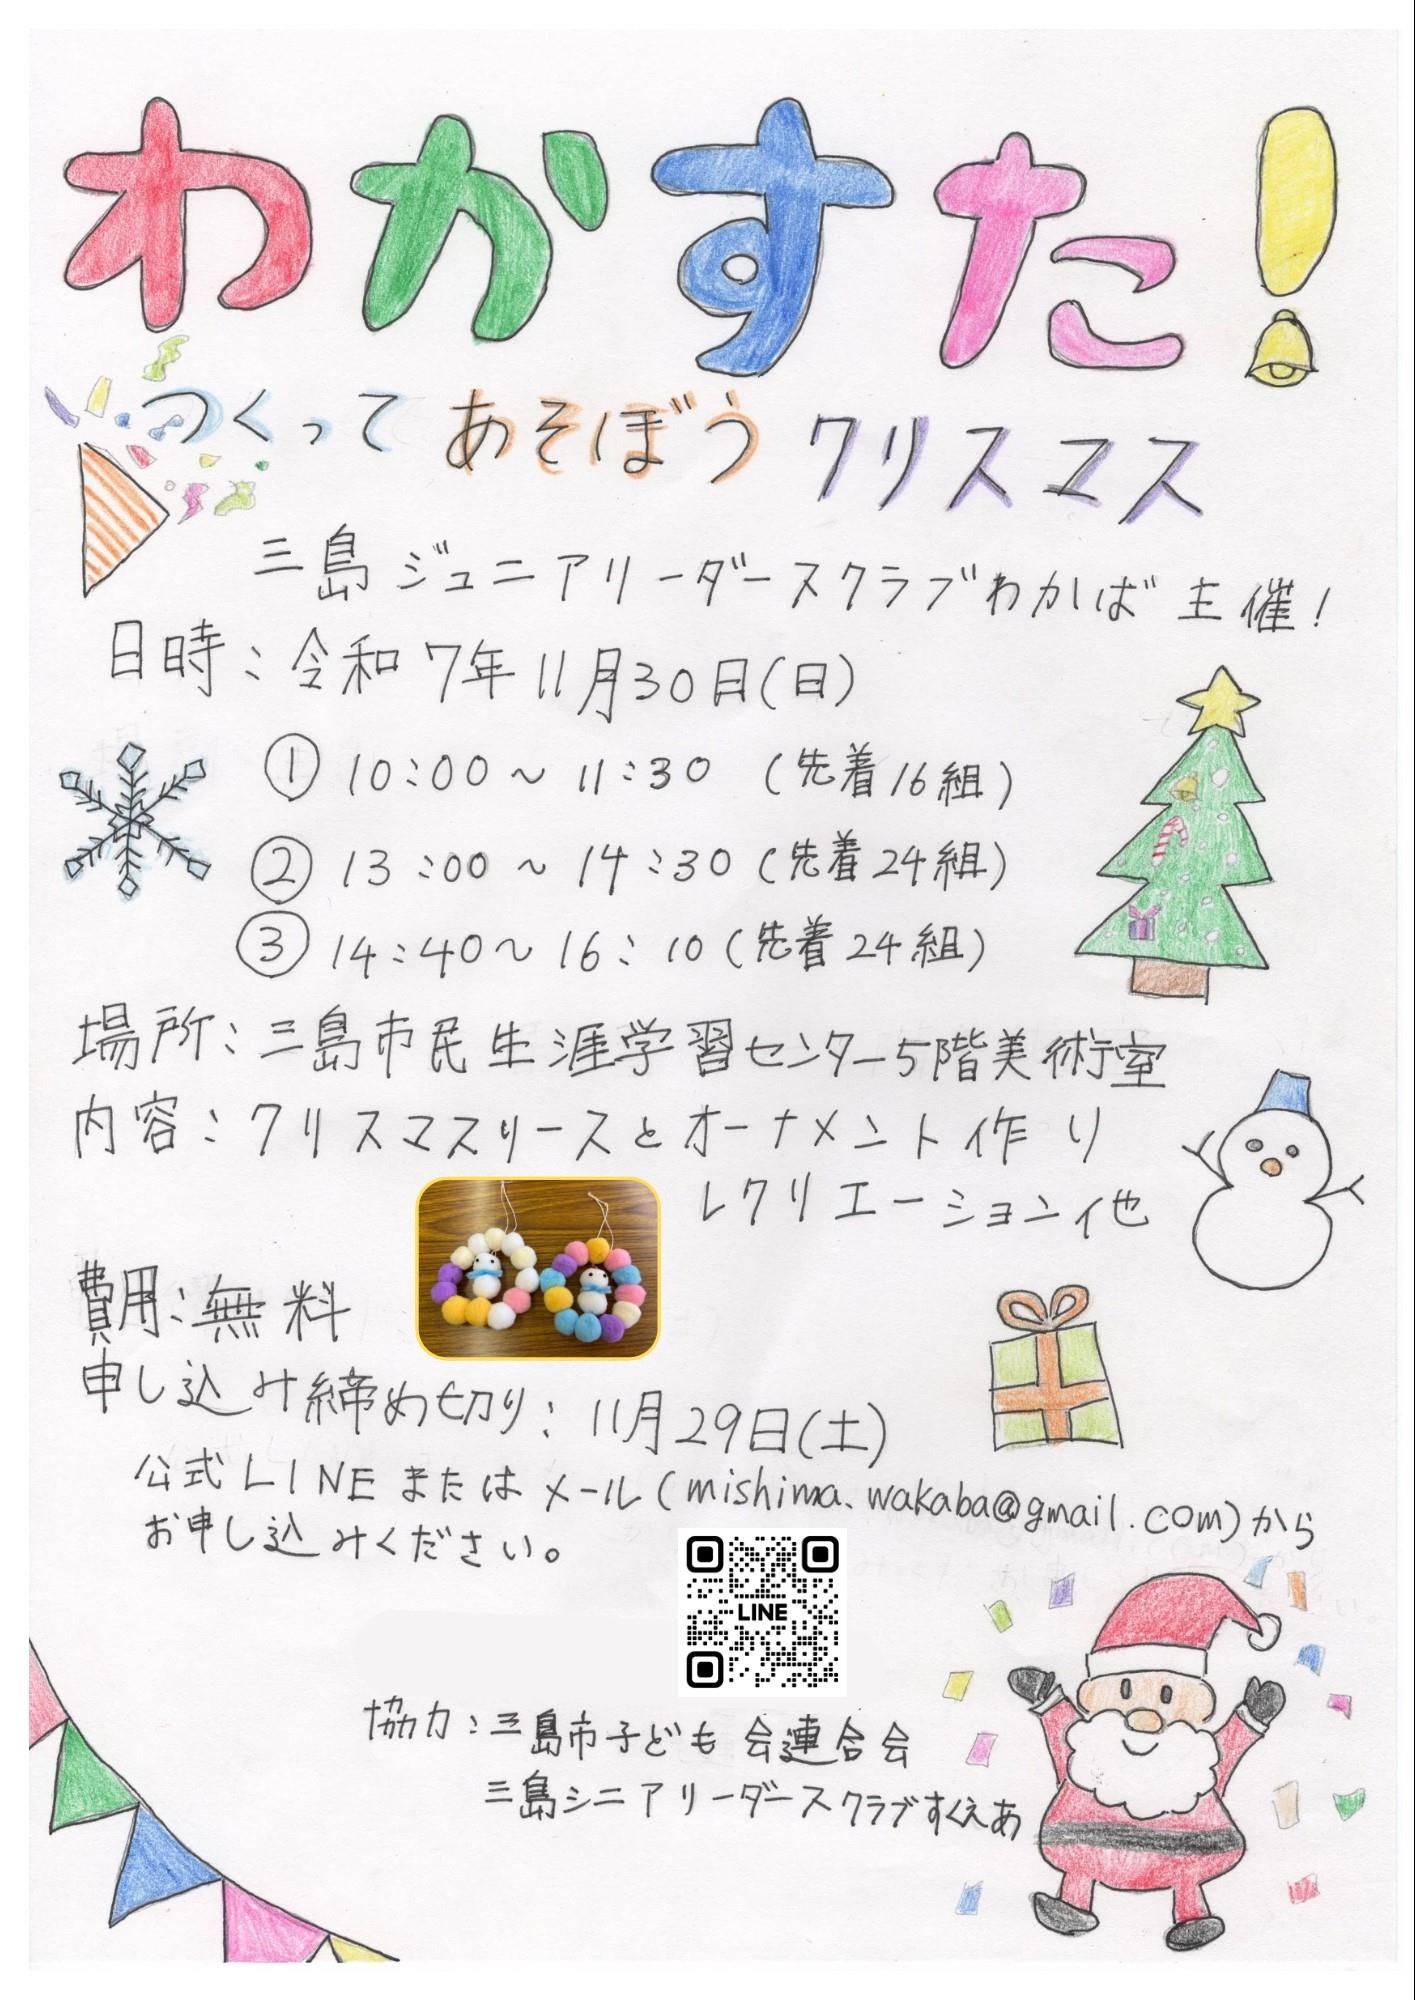 わかすた!
つくってあそぼうクリスマス
三島ジュニアリーダースクラブわかば主催!
日時:令和7年11月30日(日)
① 10:00～11:30 (先着16組)
② 13:00～14:30 (先着24組)
③ 14:40～16:10 (先着24組)
場所:三島市民生涯学習センター5階美術室
内容:クリスマスリースとオーナメント作り
レクリエーション他
費用:無料
申し込み締め切り:11月29日(土)
公式LINEまたはメール(mishima.wakaba@gmail.com)から
お申し込みください。
LINE
協力:三島市子ども会連合会
三島シニアリーダースクラブすくえあ